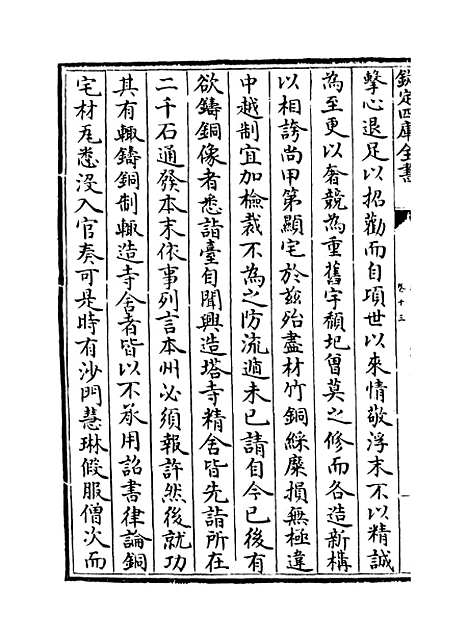 欽定四庫全書
卷十三
擊心退足以招勸而自頃世以來情敬浮末不以精誠
為至更以奢競為重舊宇頹圮曽莫之修而各造新構
以相誇尚甲第顯宅於兹殆盡材竹銅綵糜損無極違
中越制宜加檢裁不為之防流遁未已請自今已後有
欲鑄銅像者悉詣臺自聞興造塔寺精舍皆先詣所在
二千石通發本末依事列言本州必須報許然後就功
其有輒鑄銅制輒造寺舍者皆以不承用詔書律論銅
宅材瓦悉沒入官奏可是時有沙門慧琳假服僧次而